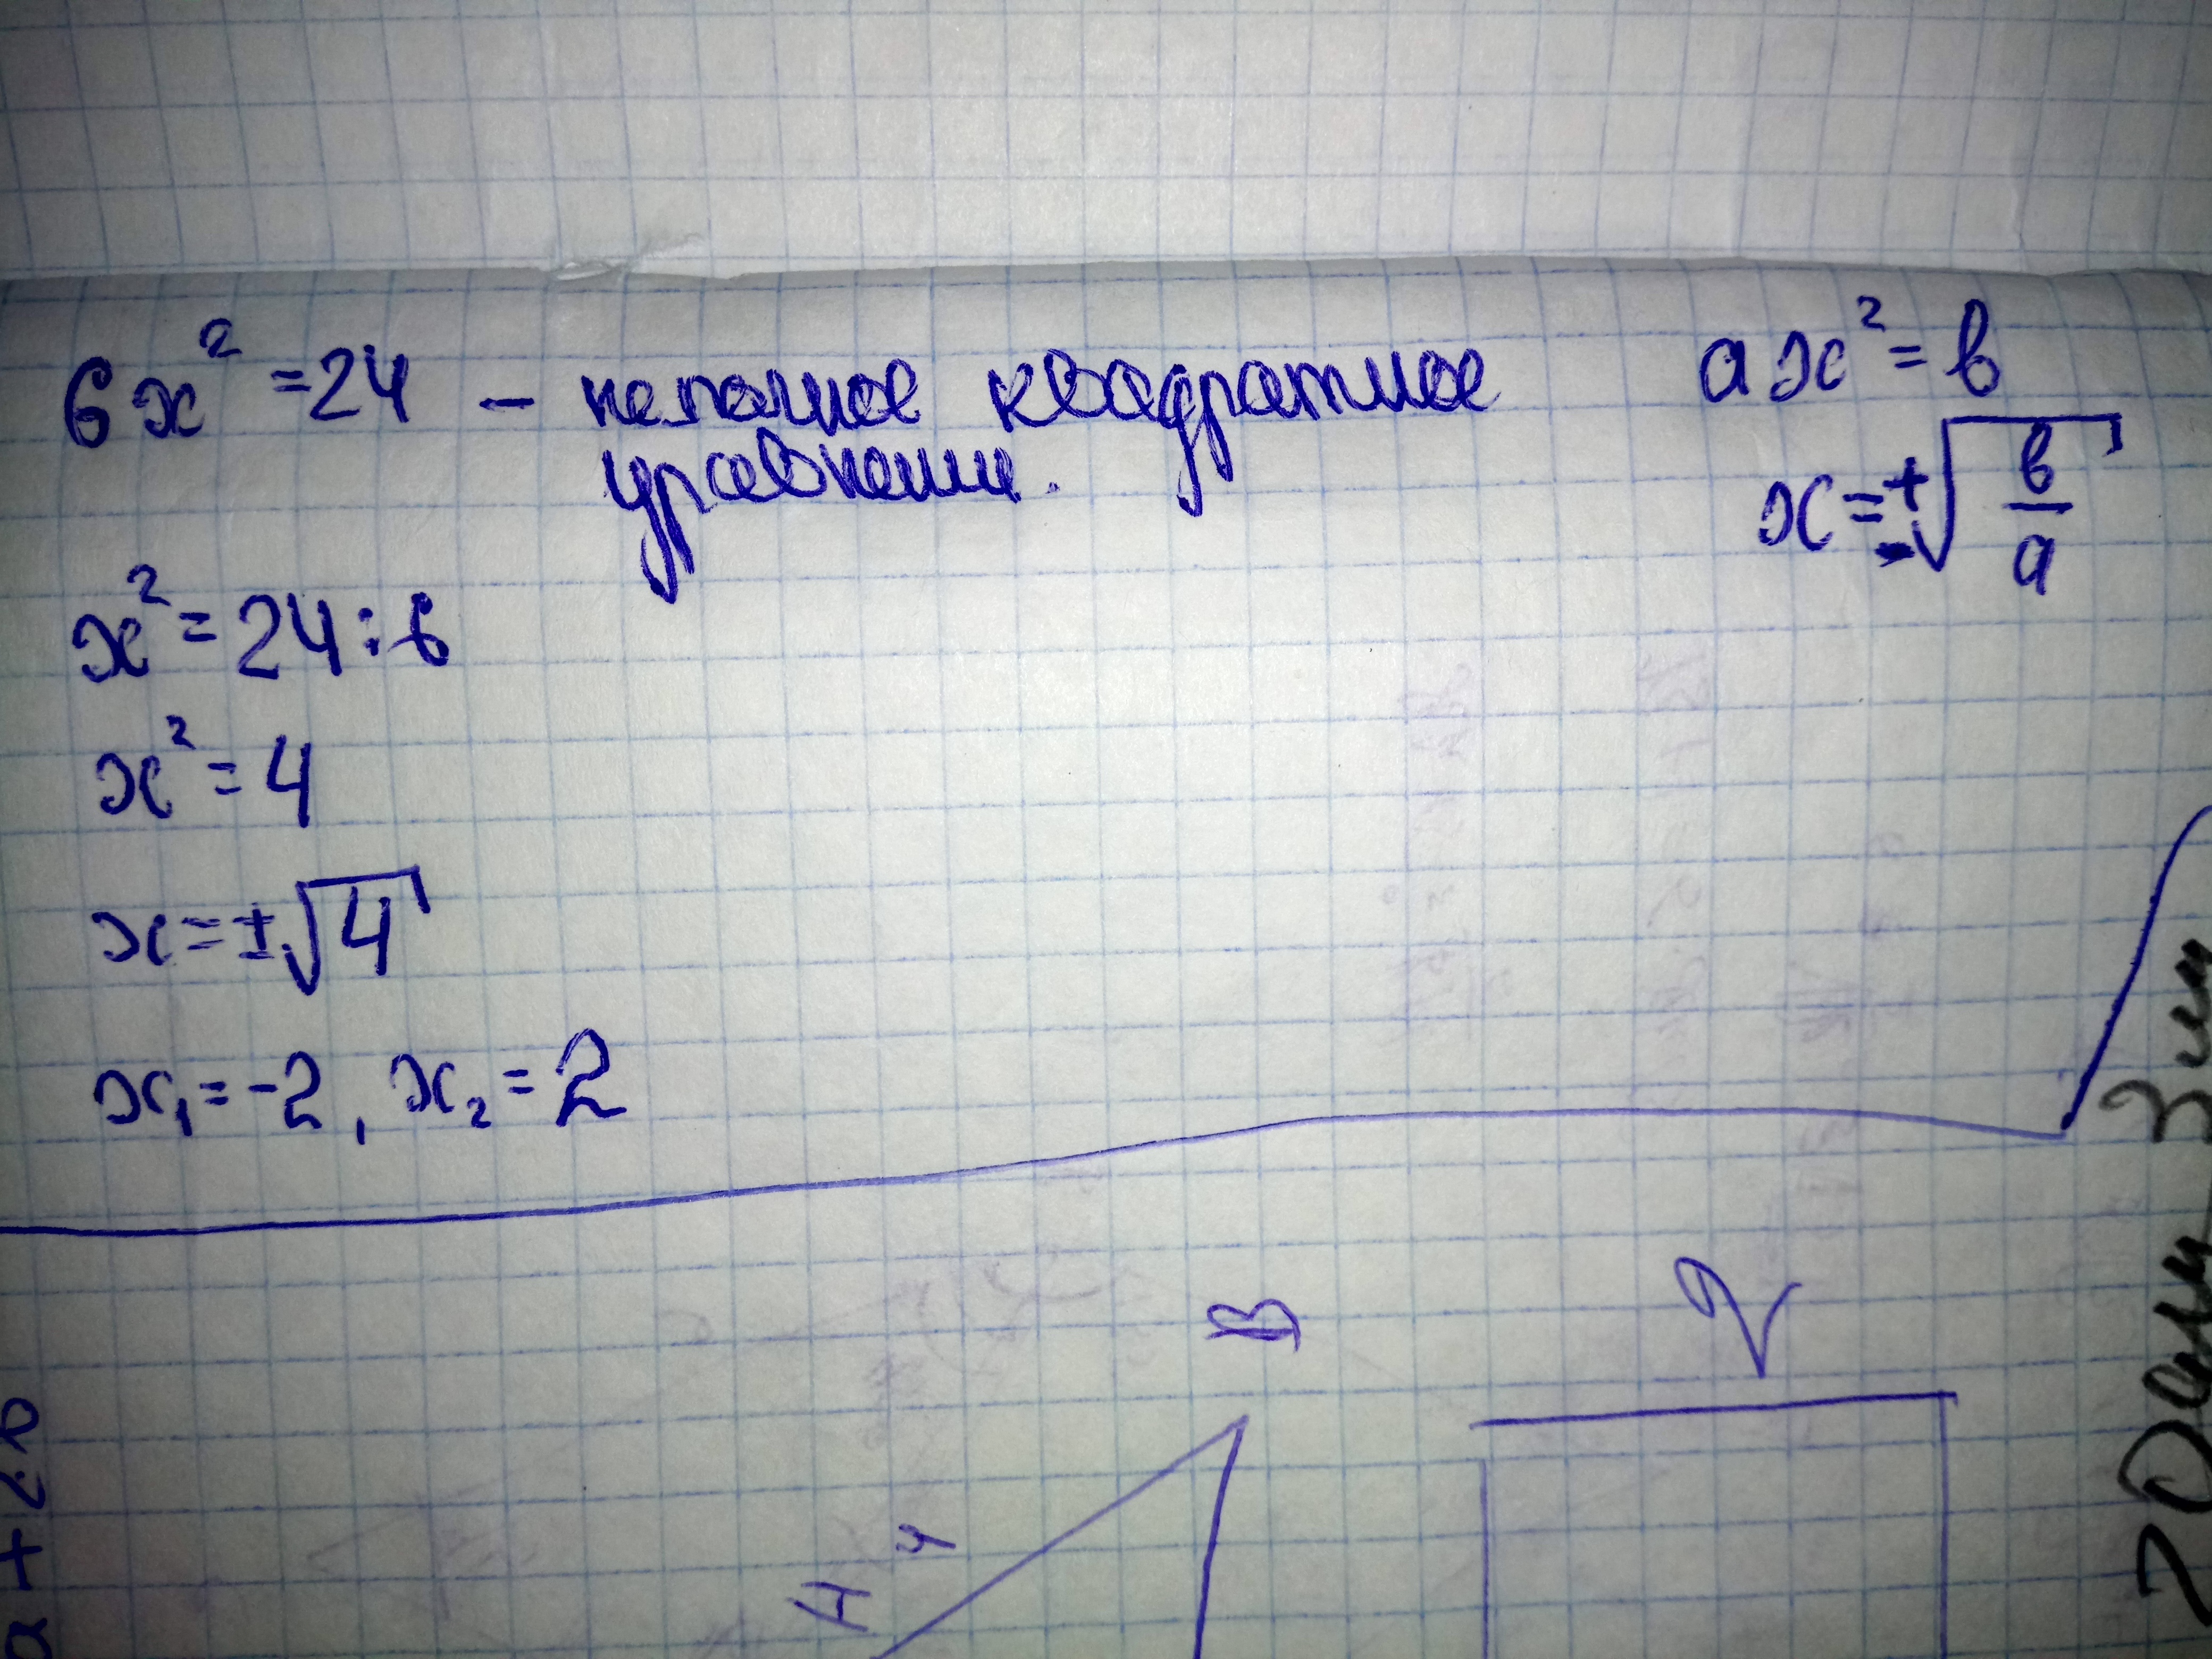 6x² = 24 – неполное квадратное
уравнение.
ax² = в
x = ±√(в/a)
x² = 24 : 6
x² = 4
x = ±√4
x₁ = -2, x₂ = 2
В
H
ч
a + 2в